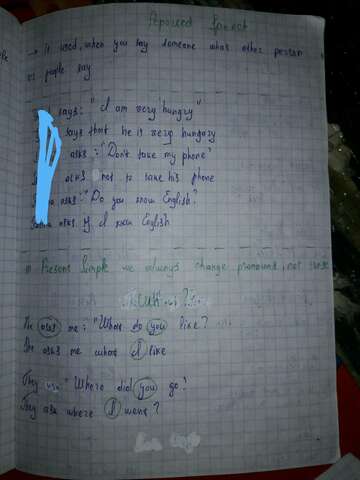 Reported Speech
→ It used, when you say someone what other person
or people say
says: "I am very hungry"
says that he is very hungry
asks: "Don't take my phone"
asks not to take his phone
asks: "Do you know English?
asks if I know English
Present Simple we always change pronound, not tense
He asks me: "What do you like?
He asks me what I like
They ask "Where did you go?
They ask where I went?